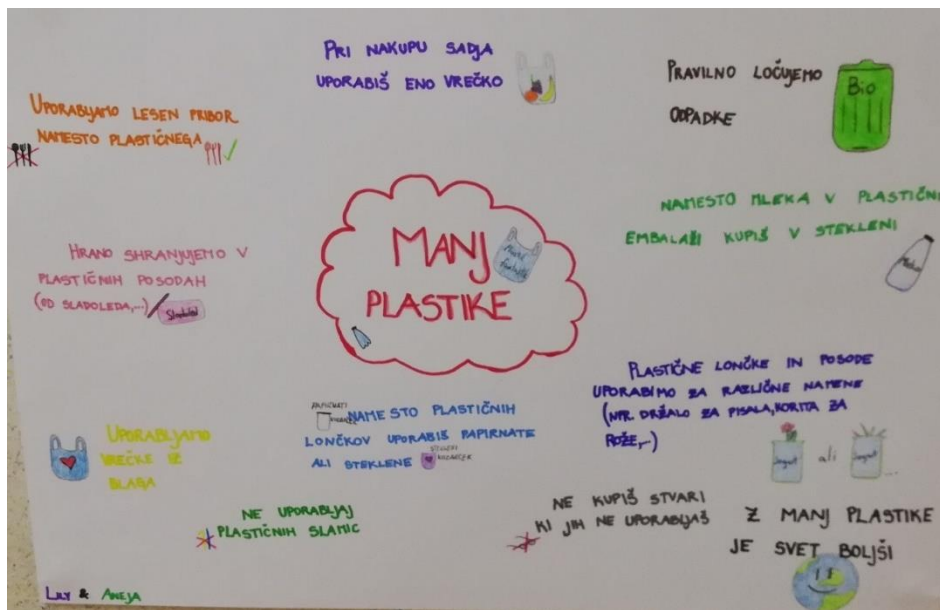 PRI NAKUPU SADJA
UPORABIŠ ENO VREČKO
PRAVILNO LOČUJEMO
ODPADKE
Bio
UPORABLJAMO LESEN PRIBOR
NAMESTO PLASTIČNEGA
NAMESTO MLEKA V PLASTIČNI
EMBALAŽI KUPIŠ V STEKLENI
HRANO SHRANJUJEMO V
PLASTIČNIH POSODAH
(OD SLADOLEDA,...)
MANJ
PLASTIKE
PLASTIČNE LONČKE IN POSODE
UPORABIMO ZA RAZLIČNE NAMENE
(NPR. DRŽALO ZA PISALA, KORITA ZA
ROŽE,...)
Jogurt ali Jogurt ...
UPORABLJAMO
VREČKE IZ
BLAGA
NAMESTO PLASTIČNIH
LONČKOV UPORABIŠ PAPIRNATE
ALI STEKLENE
NE UPORABLJAJ
PLASTIČNIH SLAMIC
NE KUPIŠ STVARI
KI JIH NE UPORABLJAŠ
Z MANJ PLASTIKE
JE SVET BOLJŠI
LILY & ANEJA